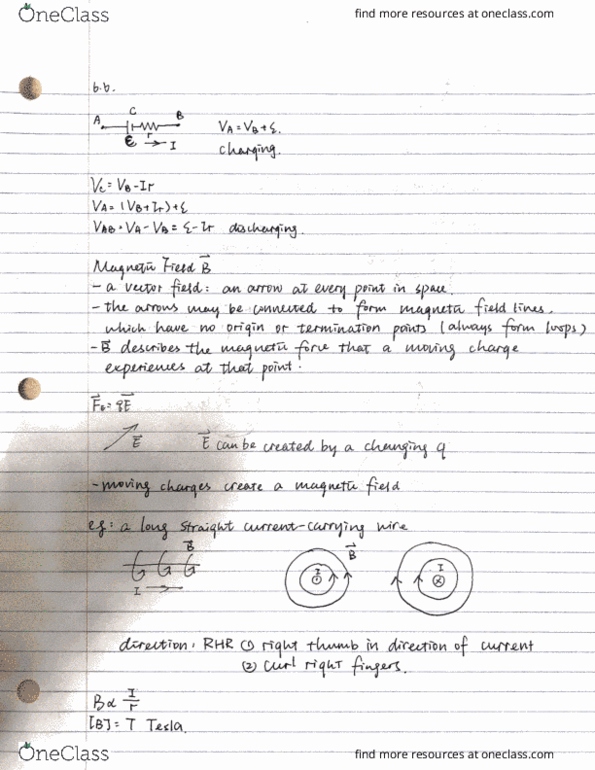 OneClass
find more resources at oneclass.com
6.6.
A C B
V_A = V_B + ε.
ε r → I
charging.
V_c = V_B - Ir
V_A = (V_B + Ir) + ε
V_AB = V_A - V_B = ε - Ir discharging.
Magnetic Field B⃗
- a vector field: an arrow at every point in space.
- the arrows may be connected to form magnetic field lines,
which have no origin or termination points (always form loops)
- B⃗ describes the magnetic force that a moving charge
experiences at that point.
F⃗e = qE⃗
E⃗ E⃗ can be created by a changing q
- moving charges create a magnetic field
eg: a long straight current-carrying wire
B⃗ I B⃗ I
I →
direction: RHR ① right thumb in direction of current
② curl right fingers.
B ∝ I/r
[B] = T Tesla.
OneClass
find more resources at oneclass.com